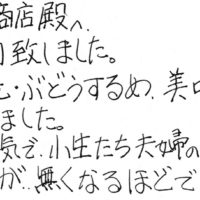 商店殿へ
致しました。
・ぶどうするめ、美
ました。
気で、小生たち夫婦の
が、無くなるほどで